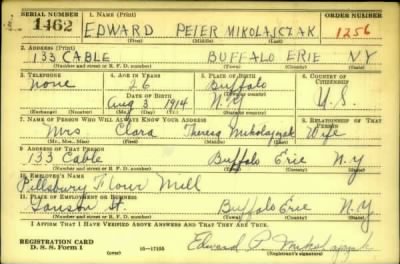 SERIAL NUMBER 1. NAME (Print) ORDER NUMBER
1462 EDWARD PETER MIKOLAJCZAK 1256
(First) (Middle) (Last)
2. ADDRESS (Print)
133 CABLE BUFFALO ERIE NY
(Number and street or R. F. D. number) (Town) (County) (State)
3. TELEPHONE 4. AGE IN YEARS 5. PLACE OF BIRTH 6. COUNTRY OF CITIZENSHIP
None 26 Buffalo
DATE OF BIRTH (Town or county)
Aug 3 1914 N.Y. U.S.
(Exchange) (Number) (Mo.) (Day) (Yr.) (State or country)
7. NAME OF PERSON WHO WILL ALWAYS KNOW YOUR ADDRESS 8. RELATIONSHIP OF THAT PERSON
Mrs Clara Theresa Mikolajczak Wife
(Mr., Mrs., Miss) (First) (Middle) (Last)
9. ADDRESS OF THAT PERSON
133 Cable Buffalo Erie N.Y
(Number and street or R. F. D. number) (Town) (County) (State)
10. EMPLOYER'S NAME
Pillsbury Flour Mill
11. PLACE OF EMPLOYMENT OR BUSINESS
Ganson St. Buffalo Erie N.Y
(Number and street or R. F. D. number) (Town) (County) (State)
I AFFIRM THAT I HAVE VERIFIED ABOVE ANSWERS AND THAT THEY ARE TRUE.
REGISTRATION CARD
D. S. S. Form 1 (over) 16-17105 Edward P. Mikolajczak
(Registrant's signature)